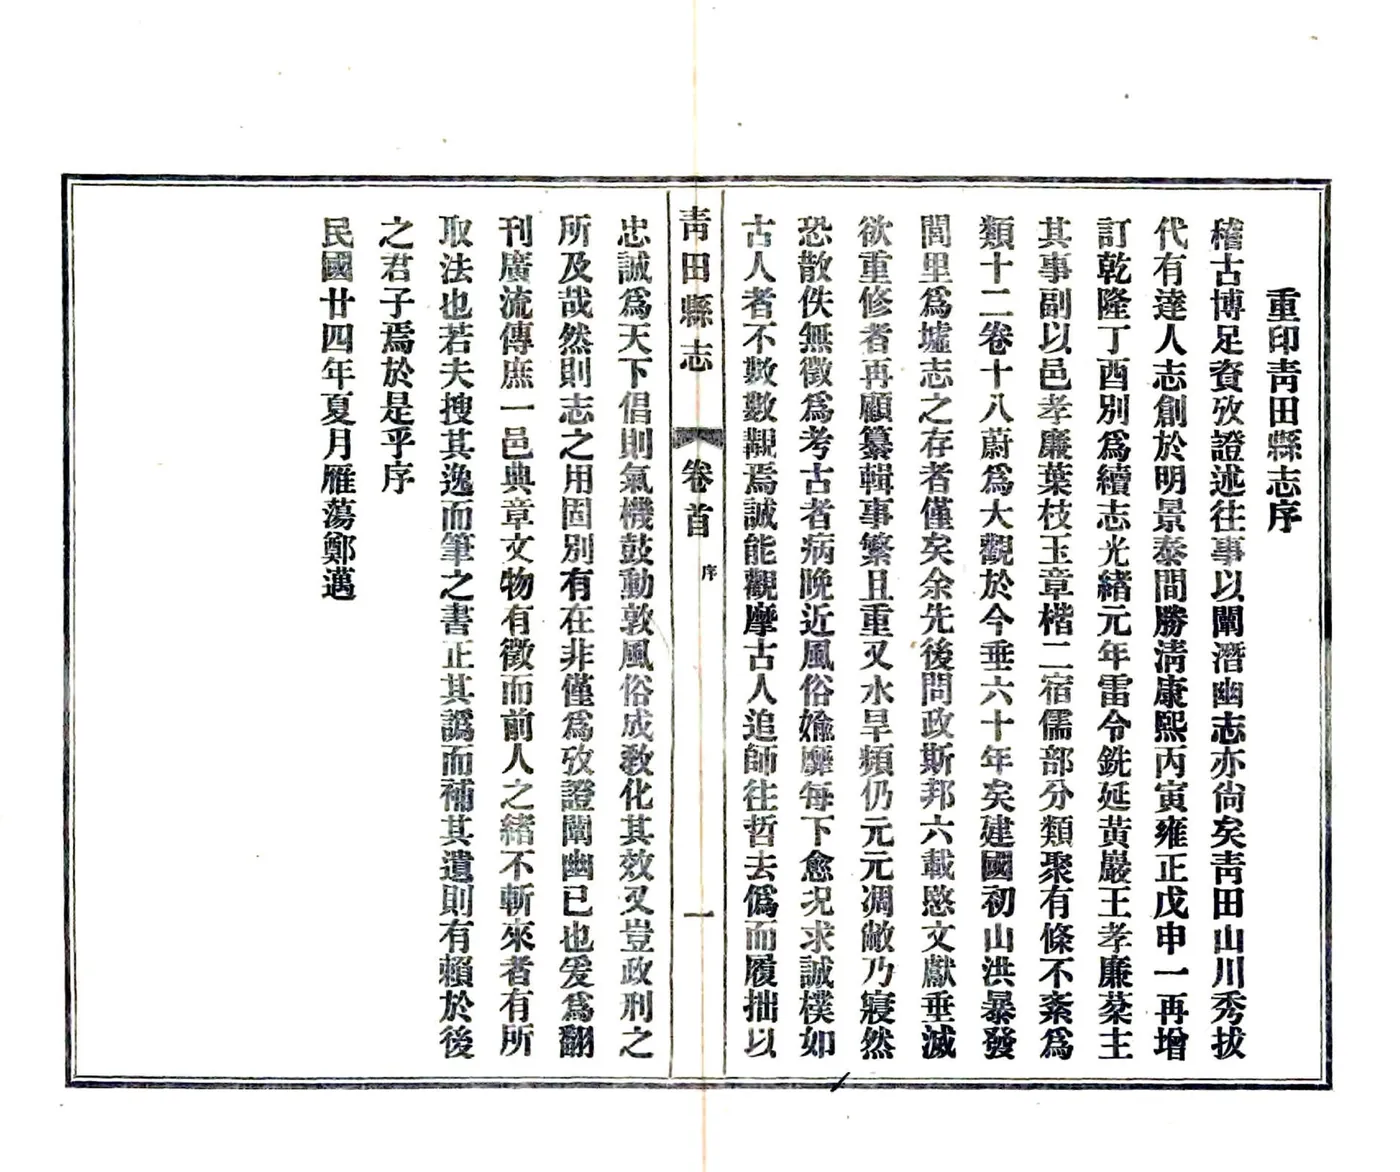 重印靑田縣志序
稽古博足資攷證述往事以闡潛幽志亦尙矣靑田山川秀拔
代有達人志創於明景泰間勝淸康熙丙寅雍正戊申一再增
訂乾隆丁酉別爲續志光緖元年雷令銑延黃巖王孝廉棻主
其事副以邑孝廉葉枝玉章楷二宿儒部分類聚有條不紊爲
類十二卷十八蔚爲大觀於今垂六十年矣建國初山洪暴發
閭里爲墟志之存者僅矣余先後問政斯邦六載愍文獻垂滅
欲重修者再顧纂輯事繁且重又水旱頻仍元元凋敝乃寢然
恐散佚無徵爲考古者病晚近風俗媮靡每下愈况求誠樸如
古人者不數數覯焉誠能觀摩古人追師往哲去僞而履拙以
靑田縣志 卷首 序 一
忠誠爲天下倡則氣機鼓動敦風俗成敎化其效又豈政刑之
所及哉然則志之用固別有在非僅爲攷證闡幽已也爰爲翻
刊廣流傳庶一邑典章文物有徵而前人之緖不斬來者有所
取法也若夫搜其逸而筆之書正其譌而補其遺則有賴於後
之君子焉於是乎序
民國廿四年夏月雁蕩鄭邁